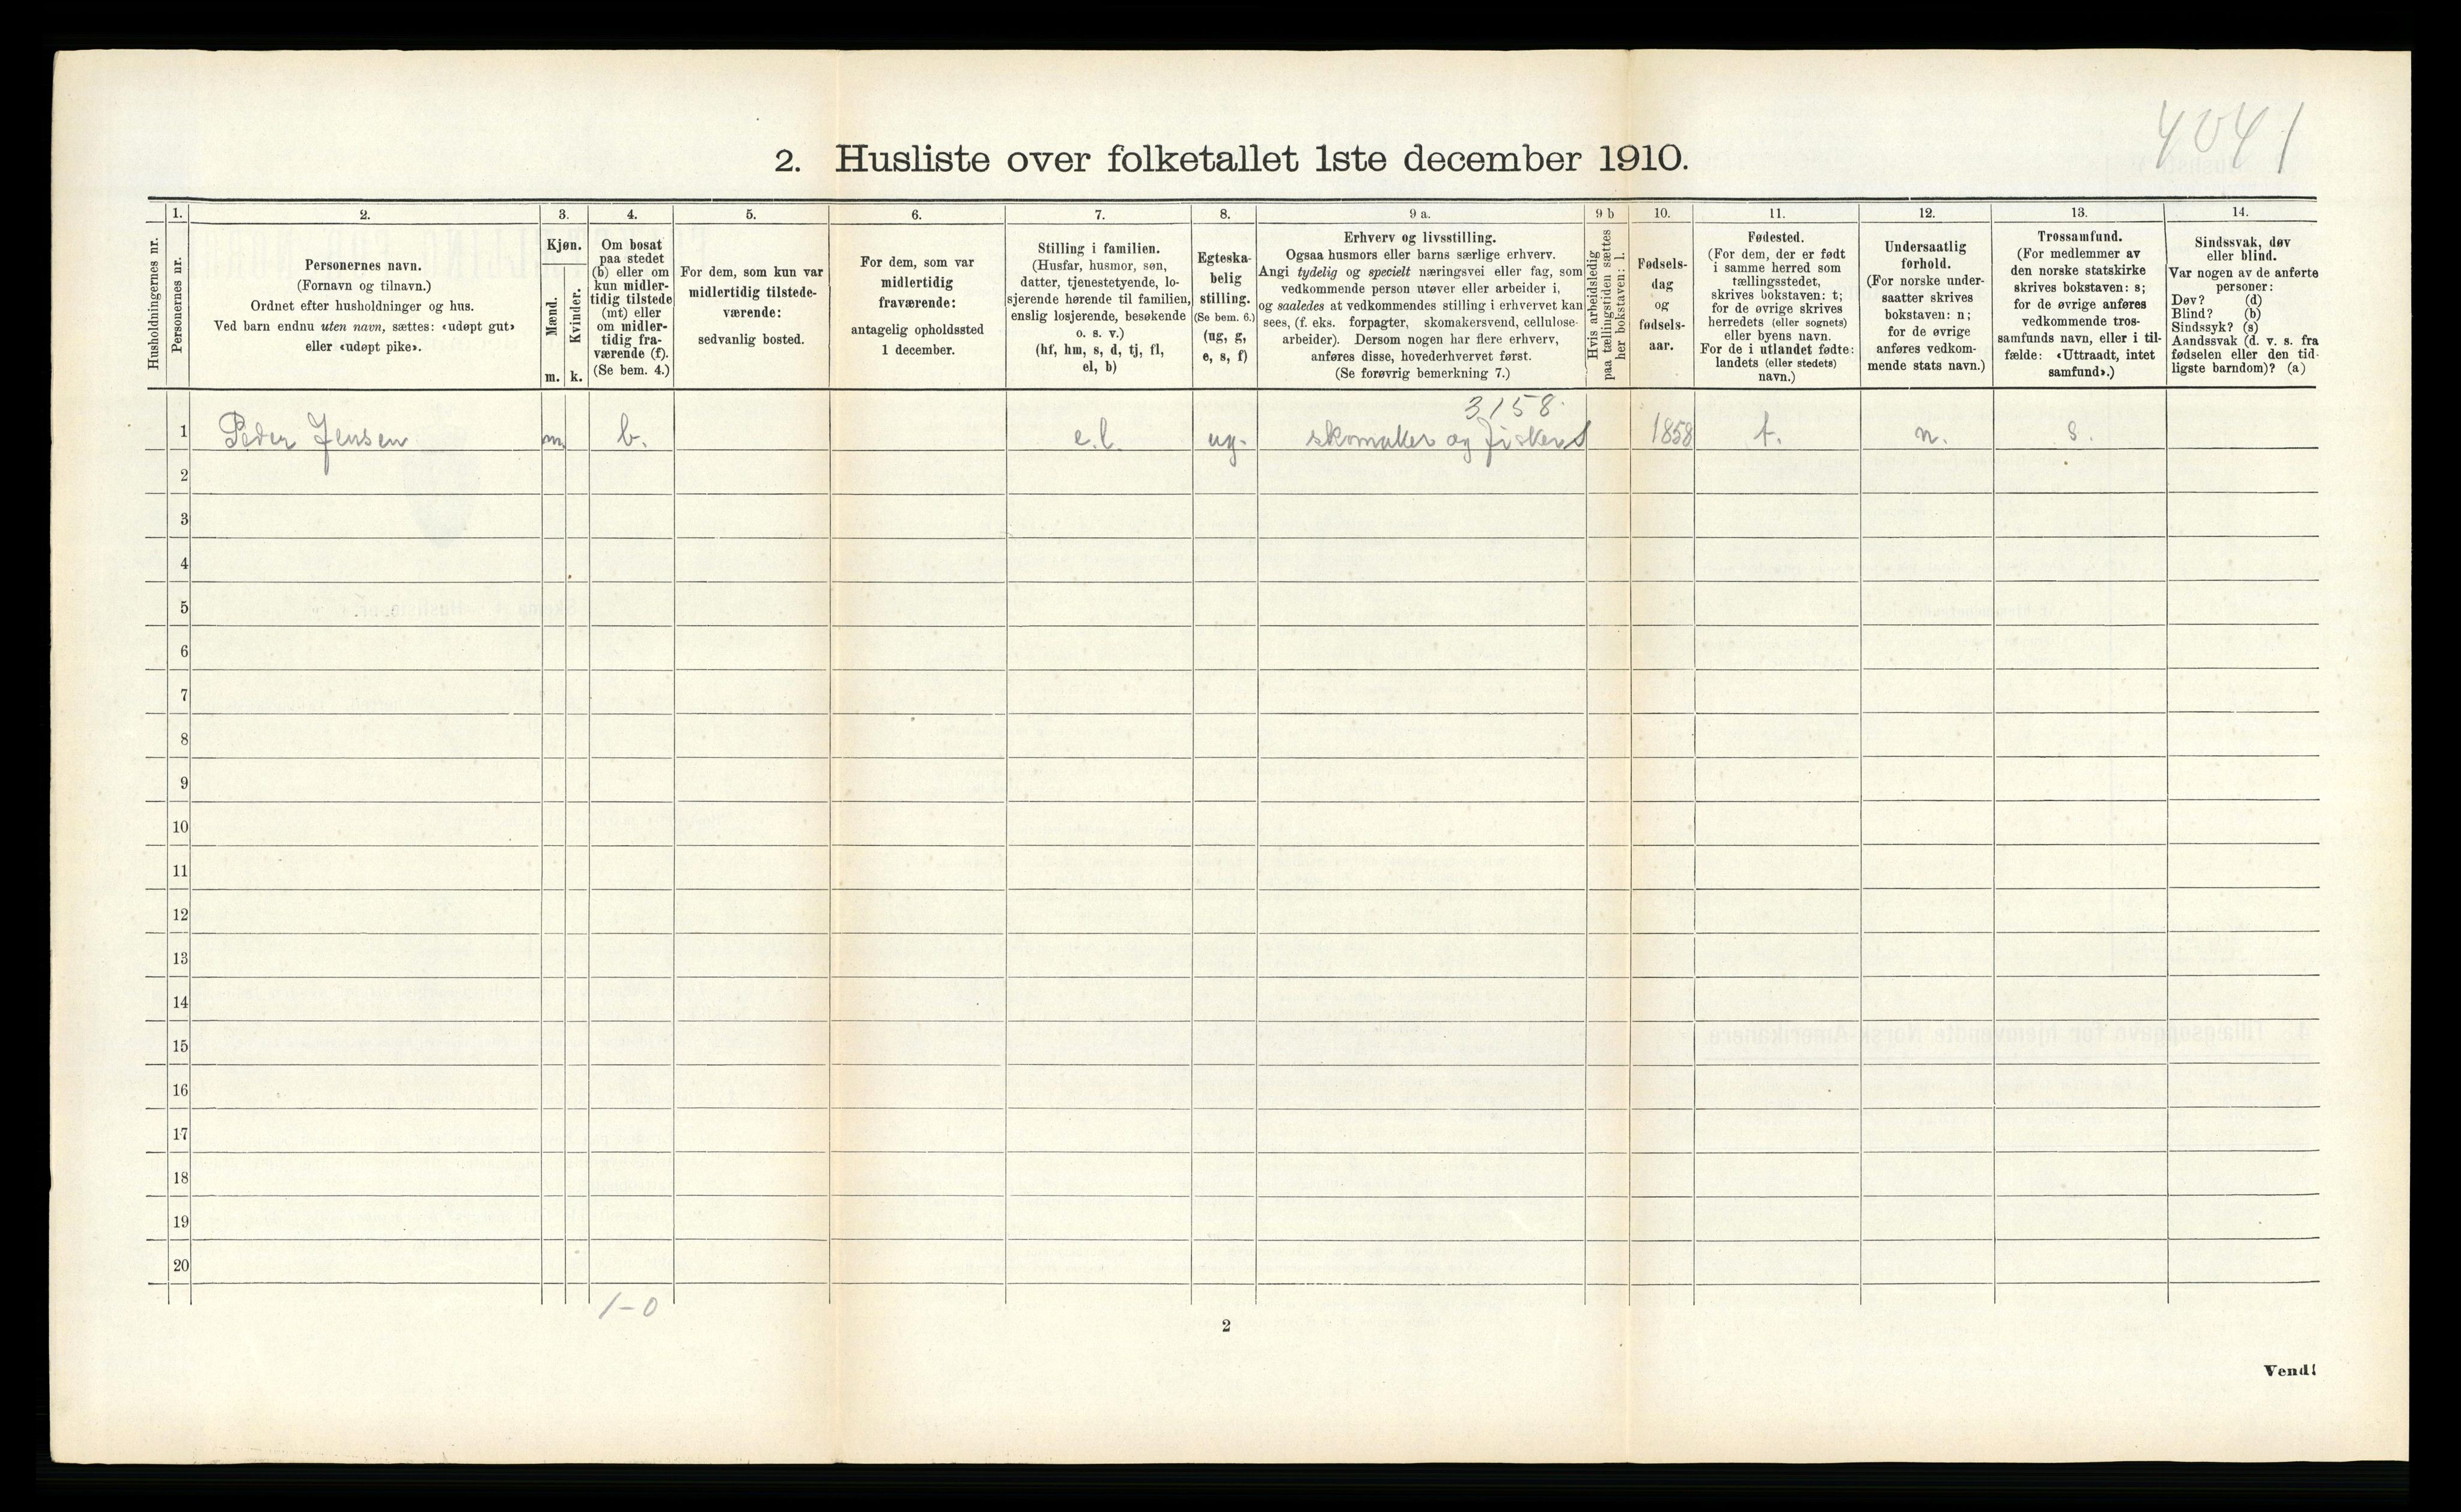 4041
2. Husliste over folketallet 1ste december 1910.
Husholdningernes nr.
1.
Personernes nr.
2.
Personernes navn.
(Fornavn og tilnavn.)
Ordnet efter husholdninger og hus.
Ved barn endnu uten navn, sættes: «udøpt gut»
eller «udøpt pike».
3.
Kjøn.
Mænd.
m.
Kvinder.
k.
4.
Om bosat
paa stedet
(b) eller om
kun midler-
tidig tilstede
(mt) eller
om midler-
tidig fra-
værende (f).
(Se bem. 4.)
5.
For dem, som kun var
midlertidig tilstede-
værende:
sedvanlig bosted.
6.
For dem, som var
midlertidig
fraværende:
antagelig opholdssted
1 december.
7.
Stilling i familien.
(Husfar, husmor, søn,
datter, tjenestetyende, lo-
sjerende hørende til familien,
enslig losjerende, besøkende
o. s. v.)
(hf, hm, s, d, tj, fl,
el, b)
8.
Egteska-
belig
stilling.
(Se bem. 6.)
(ug, g,
e, s, f)
9 a.
Erhverv og livsstilling.
Ogsaa husmors eller barns særlige erhverv.
Angi tydelig og specielt næringsvei eller fag, som
vedkommende person utøver eller arbeider i,
og saaledes at vedkommendes stilling i erhvervet kan
sees, (f. eks. forpagter, skomakersvend, cellulose-
arbeider). Dersom nogen har flere erhverv,
anføres disse, hovederhvervet først.
(Se forøvrig bemerkning 7.)
9 b
Hvis arbeidsledig
paa tællingstiden sættes
her bokstaven: l.
10.
Fødsels-
dag
og
fødsels-
aar.
11.
Fødested.
(For dem, der er født
i samme herred som
tællingsstedet,
skrives bokstaven: t;
for de øvrige skrives
herredets (eller sognets)
eller byens navn.
For de i utlandet fødte:
landets (eller stedets)
navn.)
12.
Undersaatlig
forhold.
(For norske under-
saatter skrives
bokstaven: n;
for de øvrige
anføres vedkom-
mende stats navn.)
13.
Trossamfund.
(For medlemmer av
den norske statskirke
skrives bokstaven: s;
for de øvrige anføres
vedkommende tros-
samfunds navn, eller i til-
fælde: «Uttraadt, intet
samfund».)
14.
Sindssvak, døv
eller blind.
Var nogen av de anførte
personer:
Døv? (d)
Blind? (b)
Sindssyk? (s)
Aandssvak (d. v. s. fra
fødselen eller den tid-
ligste barndom)? (a)
3158.
1 Peder Jensen m. b. e.l. ug. skomaker og fisker 1858 t. n. s.
2
3
4
5
6
7
8
9
10
11
12
13
14
15
16
17
18
19
20
1-0
2
Vend!